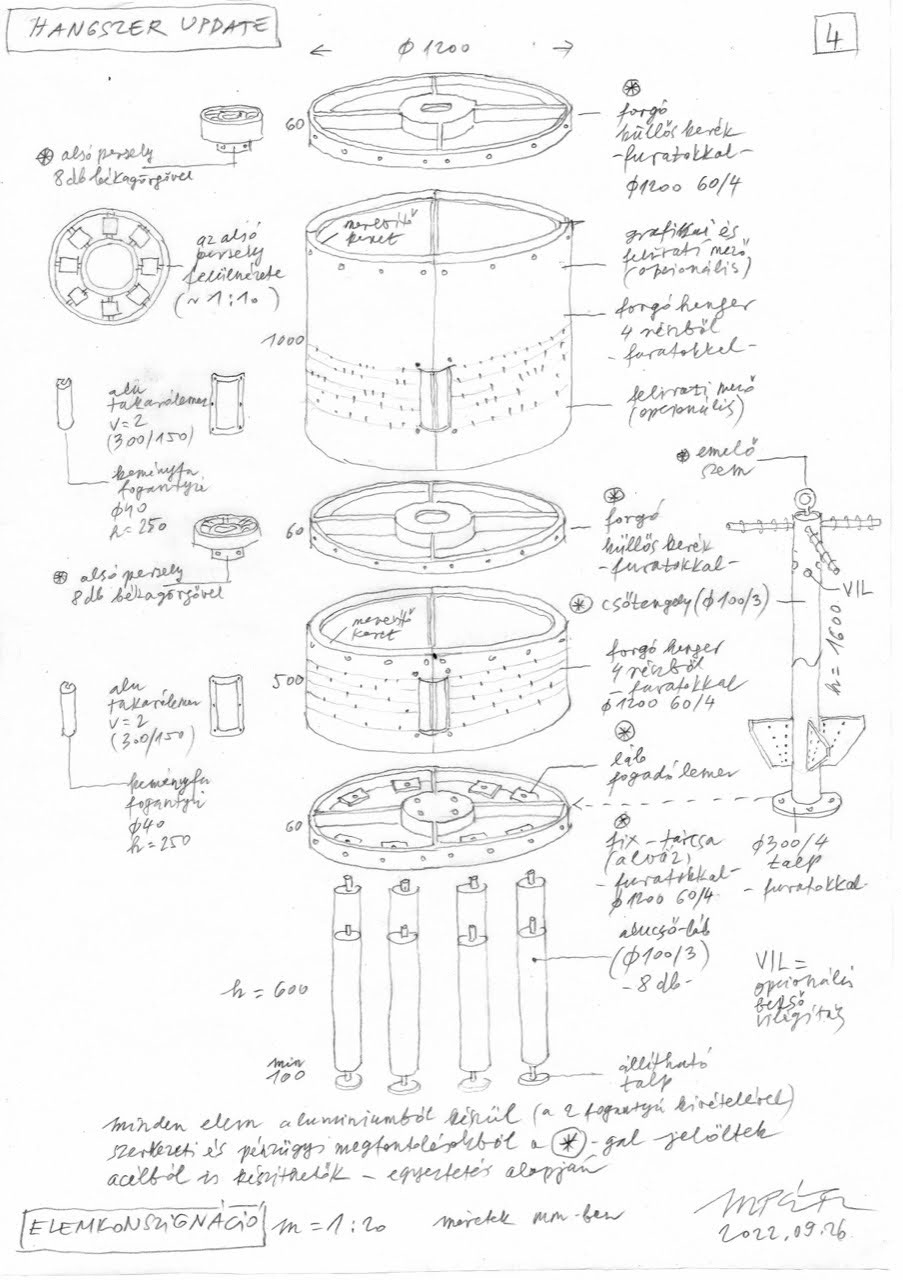 HANGSZER UPDATE
4
Φ 1200
60
forgó
küllős kerék
-furatokkal-
Φ1200 60/4
alsó persely
8 db békagörgővel
az alsó
persely
felülnézete
(~ 1:10)
merevítő
keret
grafikai és
felirati mező
(opcionális)
forgó henger
4 részből
-furatokkal-
1000
felirati mező
(opcionális)
alu
takarólemez
v=2
(300/150)
keményfa
fogantyú
Φ40
h=250
emelő
szem
60
forgó
küllős kerék
-furatokkal-
alsó persely
8 db békagörgővel
csőtengely (Φ100/3)
VIL
h=1600
merevítő
keret
500
forgó henger
4 részből
-furatokkal
Φ1200 60/4
alu
takarólemez
v=2
(300/150)
keményfa
fogantyú
Φ40
h=250
láb
fogadó lemez
60
fix-tárcsa
(alváz)
-furatokkal-
Φ1200 60/4
Φ300/4
talp
-furatokkal-
alucső-láb
(Φ100/3)
-8 db-
VIL=
opcionális
belső
világítás
h=600
min
100
állítható
talp
minden elem alumíniumból készül (a 2 fogantyú kivételével)
szerkezeti és pénzügyi megfontolásokból a *-gal jelöltek
acélból is készíthetők - egyeztetés alapján
ELEMKONSZIGNÁCIÓ
m=1:20
méretek mm-ben
2022.09.26